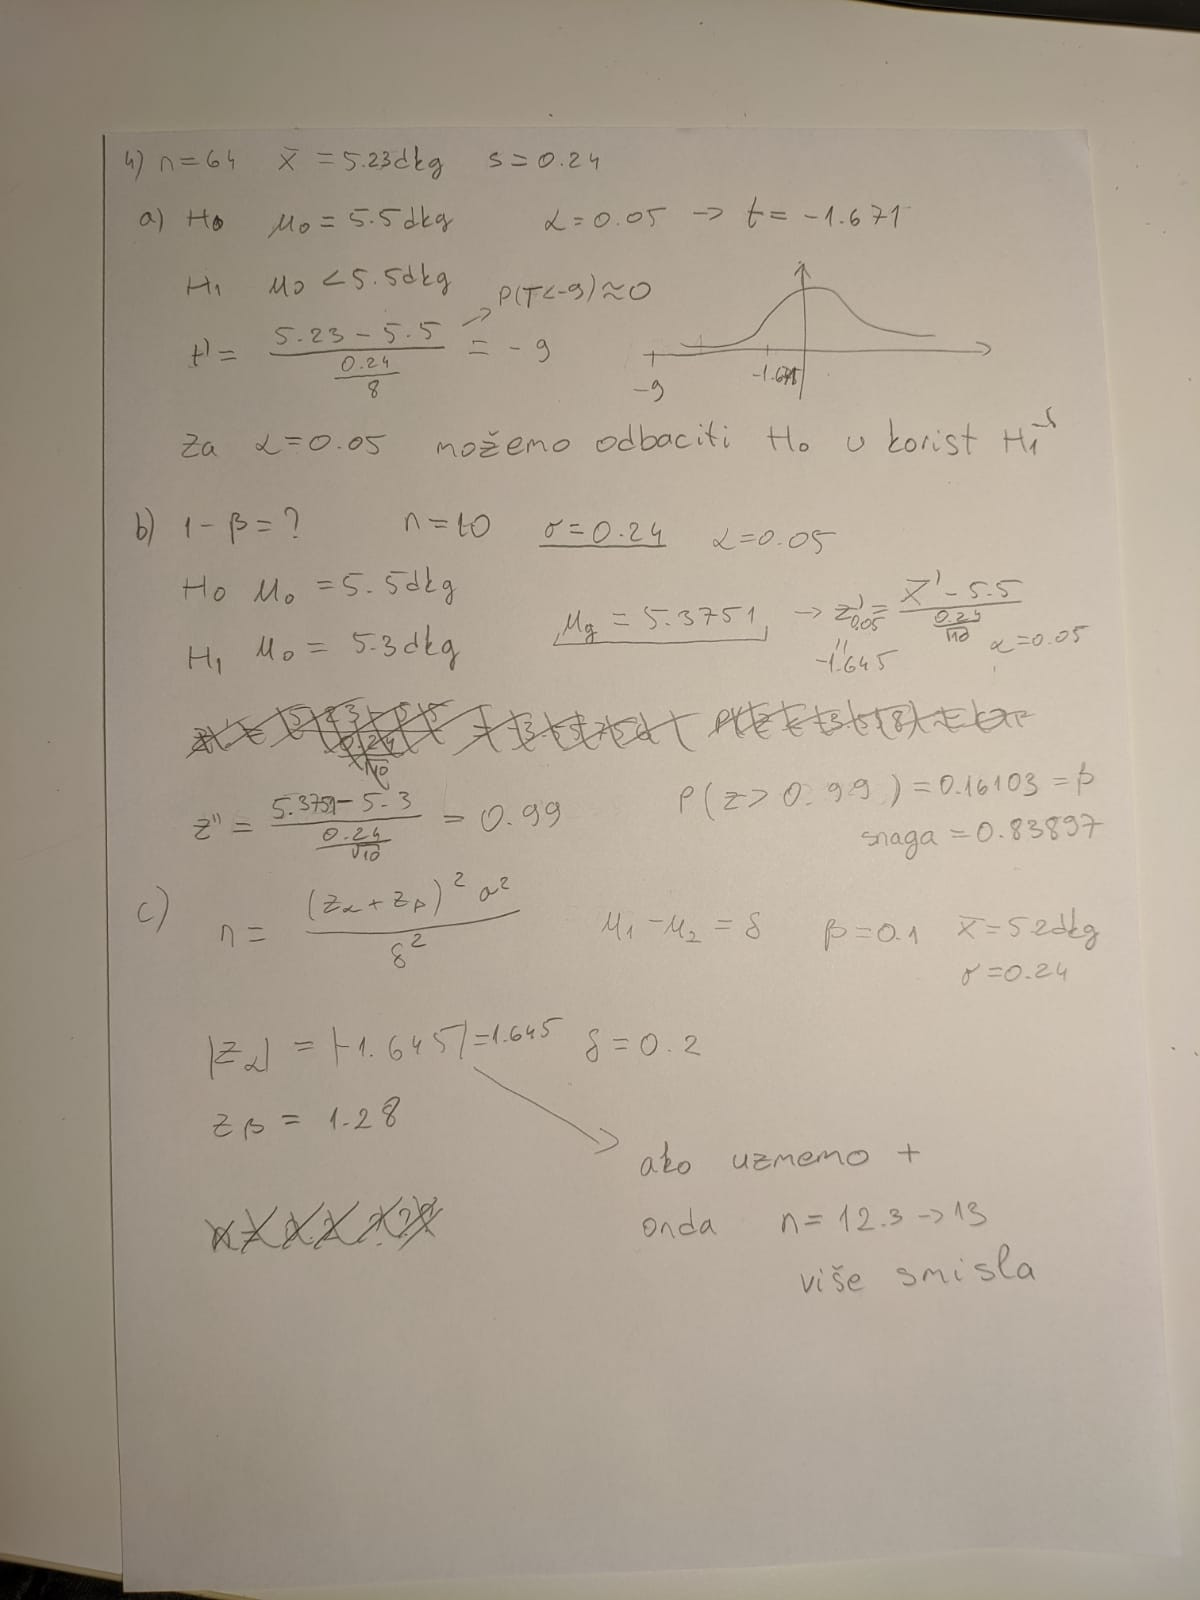 4) n=64 x̄ = 5.23dkg s=0.24
a) H0 μ0 = 5.5dkg α=0.05 -> t= -1.671
H1 μ0 < 5.5dkg P(T<-9)≈0
t' = (5.23 - 5.5) / (0.24/8) = -9
-9
Za α=0.05 možemo odbaciti H0 u korist H1
b) 1-β=? n=10 σ=0.24 α=0.05
H0 μ0 = 5.5dkg
μg = 5.3751 -> z'0.05 = (x̄' - 5.5) / (0.24/√10) α=0.05
H1 μ0 = 5.3dkg
-1.645
z" = (5.3751 - 5.3) / (0.24/√10) = 0.99 P(z > 0.99) = 0.16103 = β
snaga = 0.83897
c) n = (zα + zβ)² σ² / δ² μ1 - μ2 = δ β=0.1 x̄=5.2dkg
σ=0.24
|zα| = |-1.645| = 1.645 δ = 0.2
zβ = 1.28
ako uzmemo +
onda n = 12.3 -> 13
više smisla